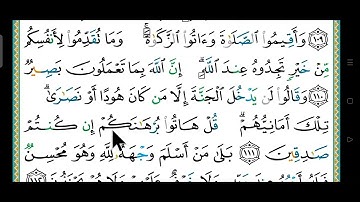 ١٠٩ وَأَقِيمُوا۟ ٱلصَّلَوٰةَ وَءَاتُوا۟ ٱلزَّكَوٰةَ ۚ وَمَا تُقَدِّمُوا۟ لِأَنفُسِكُم
مِّنْ خَيْرٍ تَجِدُوهُ عِندَ ٱللَّهِ ۗ إِنَّ ٱللَّهَ بِمَا تَعْمَلُونَ بَصِيرٌ
١١٠ وَقَالُوا۟ لَن يَدْخُلَ ٱلْجَنَّةَ إِلَّا مَن كَانَ هُودًا أَوْ نَصَٰرَىٰ ۗ
تِلْكَ أَمَانِيُّهُمْ ۗ قُلْ هَاتُوا۟ بُرْهَٰنَكُمْ إِن كُنتُمْ
صَٰدِقِينَ ١١١ بَلَىٰ مَنْ أَسْلَمَ وَجْهَهُۥ لِلَّهِ وَهُوَ مُحْسِنٌ
فَلَهُۥٓ أَجْرُهُۥ